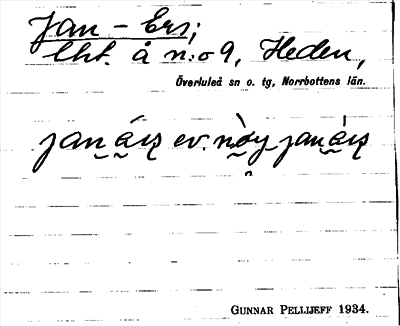 Jan-Ers;
lht. å n:o 9, Heden,
Överluleå sn o. tg, Norrbottens län.
jan ev.
GUNNAR PELLIJEFF 1934.